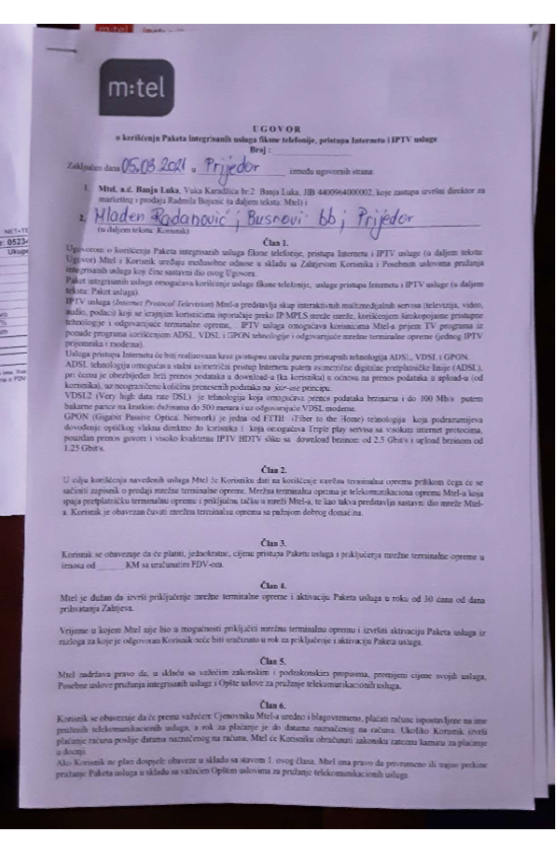 m:tel
UGOVOR
o korišćenju Paketa integrisanih usluga fiksne telefonije, pristupa Internetu i IPTV usluge
Broj :
Zaključen dana 05.03.2021 u Prijedor između ugovornih strana:
1. Mtel, a.d. Banja Luka, Vuka Karadžića br.2 Banja Luka, JIB 4400964000002, koje zastupa izvršni direktor za
marketing i prodaju Radmila Bojanić (u daljem tekstu: Mtel) i
2. Mladen Radanović, Busnovi bb, Prijedor
(u daljem tekstu: Korisnik)
Član 1.
Ugovorom o korišćenju Paketa integrisanih usluga fiksne telefonije, pristupa Internetu i IPTV usluge (u daljem tekstu:
Ugovor) Mtel i Korisnik uređuju međusobne odnose u skladu sa Zahtjevom Korisnika i Posebnim uslovima pružanja
integrisanih usluga koji čine sastavni dio ovog Ugovora.
Paket integrisanih usluga omogućava korišćenje usluge fiksne telefonije, usluge pristupa Internetu i IPTV usluge (u daljem
tekstu: Paket usluga).
IPTV usluga (Internet Protocol Television) Mtel-a predstavlja skup interaktivnih multimedijalnih servisa (televizija, video,
audio, podaci) koji se krajnjim korisnicima isporučuje preko IP MPLS mreže mreže, korišćenjem širokopojasne pristupne
tehnologije i odgovarajuće terminalne opreme, . IPTV usluga omogućava korisnicima Mtel-a prijem TV programa iz
ponude programa korišćenjem ADSL, VDSL i GPON tehnologije i odgovarajuće mrežne terminalne opreme (jednog IPTV
prijemnika i modema).
Usluga pristupa Internetu će biti realizovana kroz pristupnu mrežu putem pristupnih tehnologija ADSL, VDSL i GPON.
ADSL tehnologija omogućava stalni asimetrični pristup Internetu putem asimetrične digitalne pretplatničke linije (ADSL),
pri čemu je obezbijeđen brži prenos podataka u download-u (ka korisniku) u odnosu na prenos podataka u upload-u (od
korisnika), uz neograničenu količinu prenesenih podataka na fair-use principu.
VDSL2 (Very high data rate DSL) je tehnologija koja omogućava prenos podataka brzinama i do 100 Mb/s putem
bakarne parice na kratkim dužinama do 500 metara i uz odgovarajuće VDSL modeme.
GPON (Gigabit Passive Optical Network) je jedna od FTTH (Fiber to the Home) tehnologija koja podrazumijeva
dovođenje optičkog vlakna direktno do korisnika i koja omogućava Triple play servise sa visokim internet protocima,
pouzdan prenos govora i visoko kvalitetnu IPTV HDTV sliku sa download brzinom od 2.5 Gbit/s i upload brzinom od
1.25 Gbit/s.
Član 2.
U cilju korišćenja navedenih usluga Mtel će Korisniku dati na korišćenje mrežnu terminalnu opremu prilikom čega će se
sačiniti zapisnik o predaji mrežne terminalne opreme. Mrežna terminalna oprema je telekomunikaciona oprema Mtel-a koja
spaja pretplatničku terminalnu opremu i priključnu tačku u mreži Mtel-a, te kao takva predstavlja sastavni dio mreže Mtel-
a. Korisnik je obavezan čuvati mrežnu terminalnu opremu sa pažnjom dobrog domaćina.
Član 3.
Korisnik se obavezuje da će platiti, jednokratno, cijenu pristupa Paketu usluga i priključenja mrežne terminalne opreme u
iznosu od KM sa uračunatim PDV-om.
Član 4.
Mtel je dužan da izvrši priključenje mrežne terminalne opreme i aktivaciju Paketa usluga u roku od 30 dana od dana
prihvatanja Zahtjeva.
Vrijeme u kojem Mtel nije bio u mogućnosti priključiti mrežnu terminalnu opremu i izvršiti aktivaciju Paketa usluga iz
razloga za koje je odgovoran Korisnik neće biti uračunato u rok za priključenje i aktivaciju Paketa usluga.
Član 5.
Mtel zadržava pravo da, u skladu sa važećim zakonskim i podzakonskim propisima, promijeni cijene svojih usluga,
Posebne uslove pružanja integrisanih usluga i Opšte uslove za pružanje telekomunikacionih usluga.
Član 6.
Korisnik se obavezuje da će prema važećem Cjenovniku Mtel-a uredno i blagovremeno, plaćati račune ispostavljene na ime
pruženih telekomunikacionih usluga, a rok za plaćanje je do datuma naznačenog na računu. Ukoliko Korisnik izvrši
plaćanje računa poslije datuma naznačenog na računu, Mtel će Korisniku obračunati zakonsku zateznu kamatu za plaćanje
u docnji.
Ako Korisnik ne plati dospjele obaveze u skladu sa stavom 1. ovog člana, Mtel ima pravo da privremeno ili trajno prekine
pružanje Paketa usluga u skladu sa važećim Opštim uslovima za pružanje telekomunikacionih usluga.